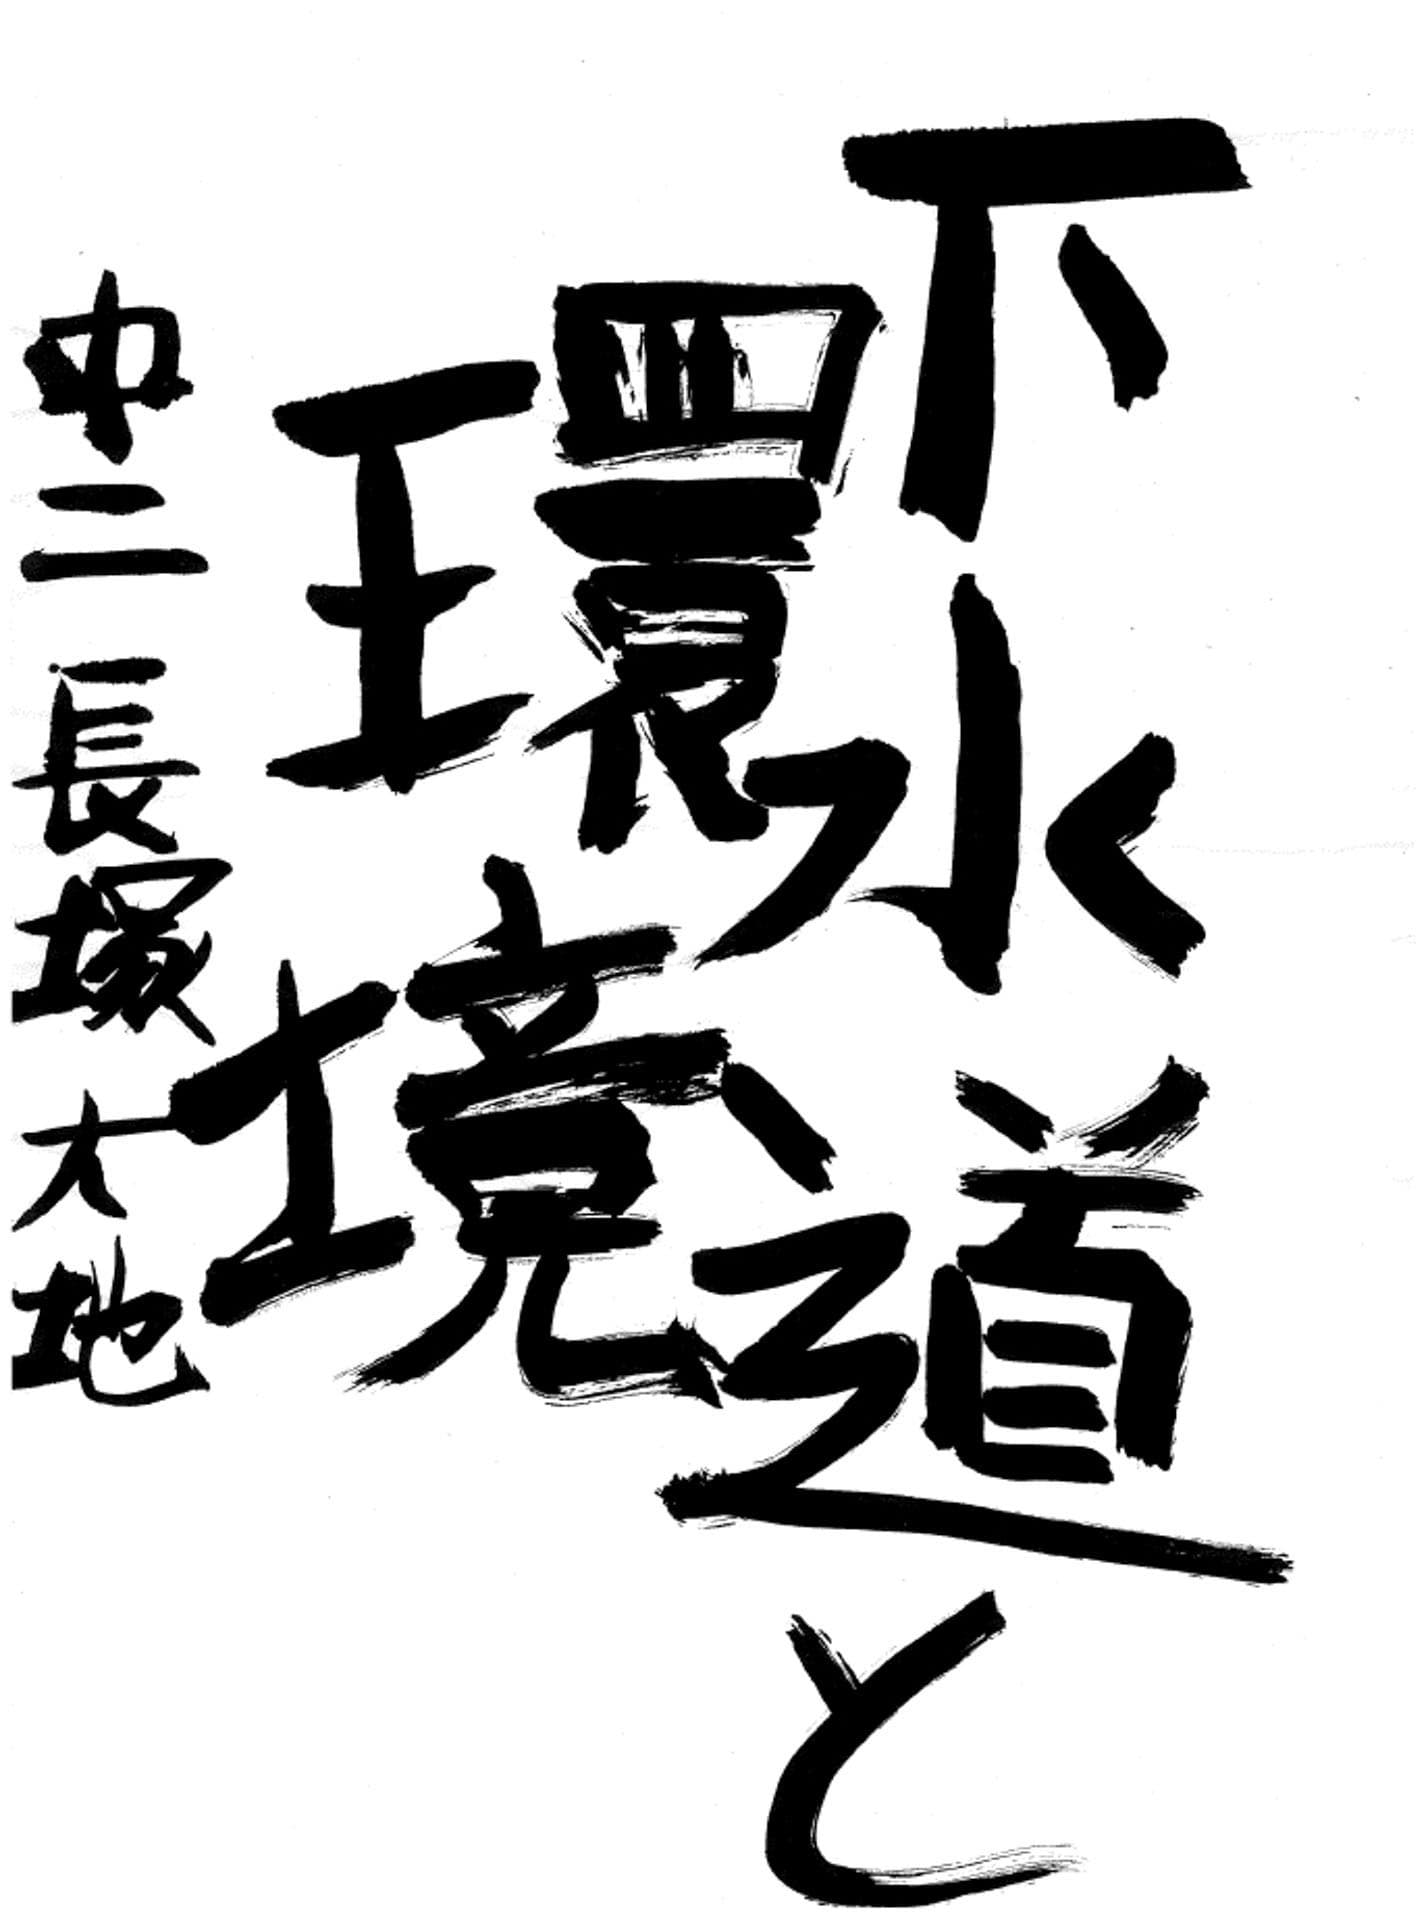 下水道と
環境
中二 長塚大地